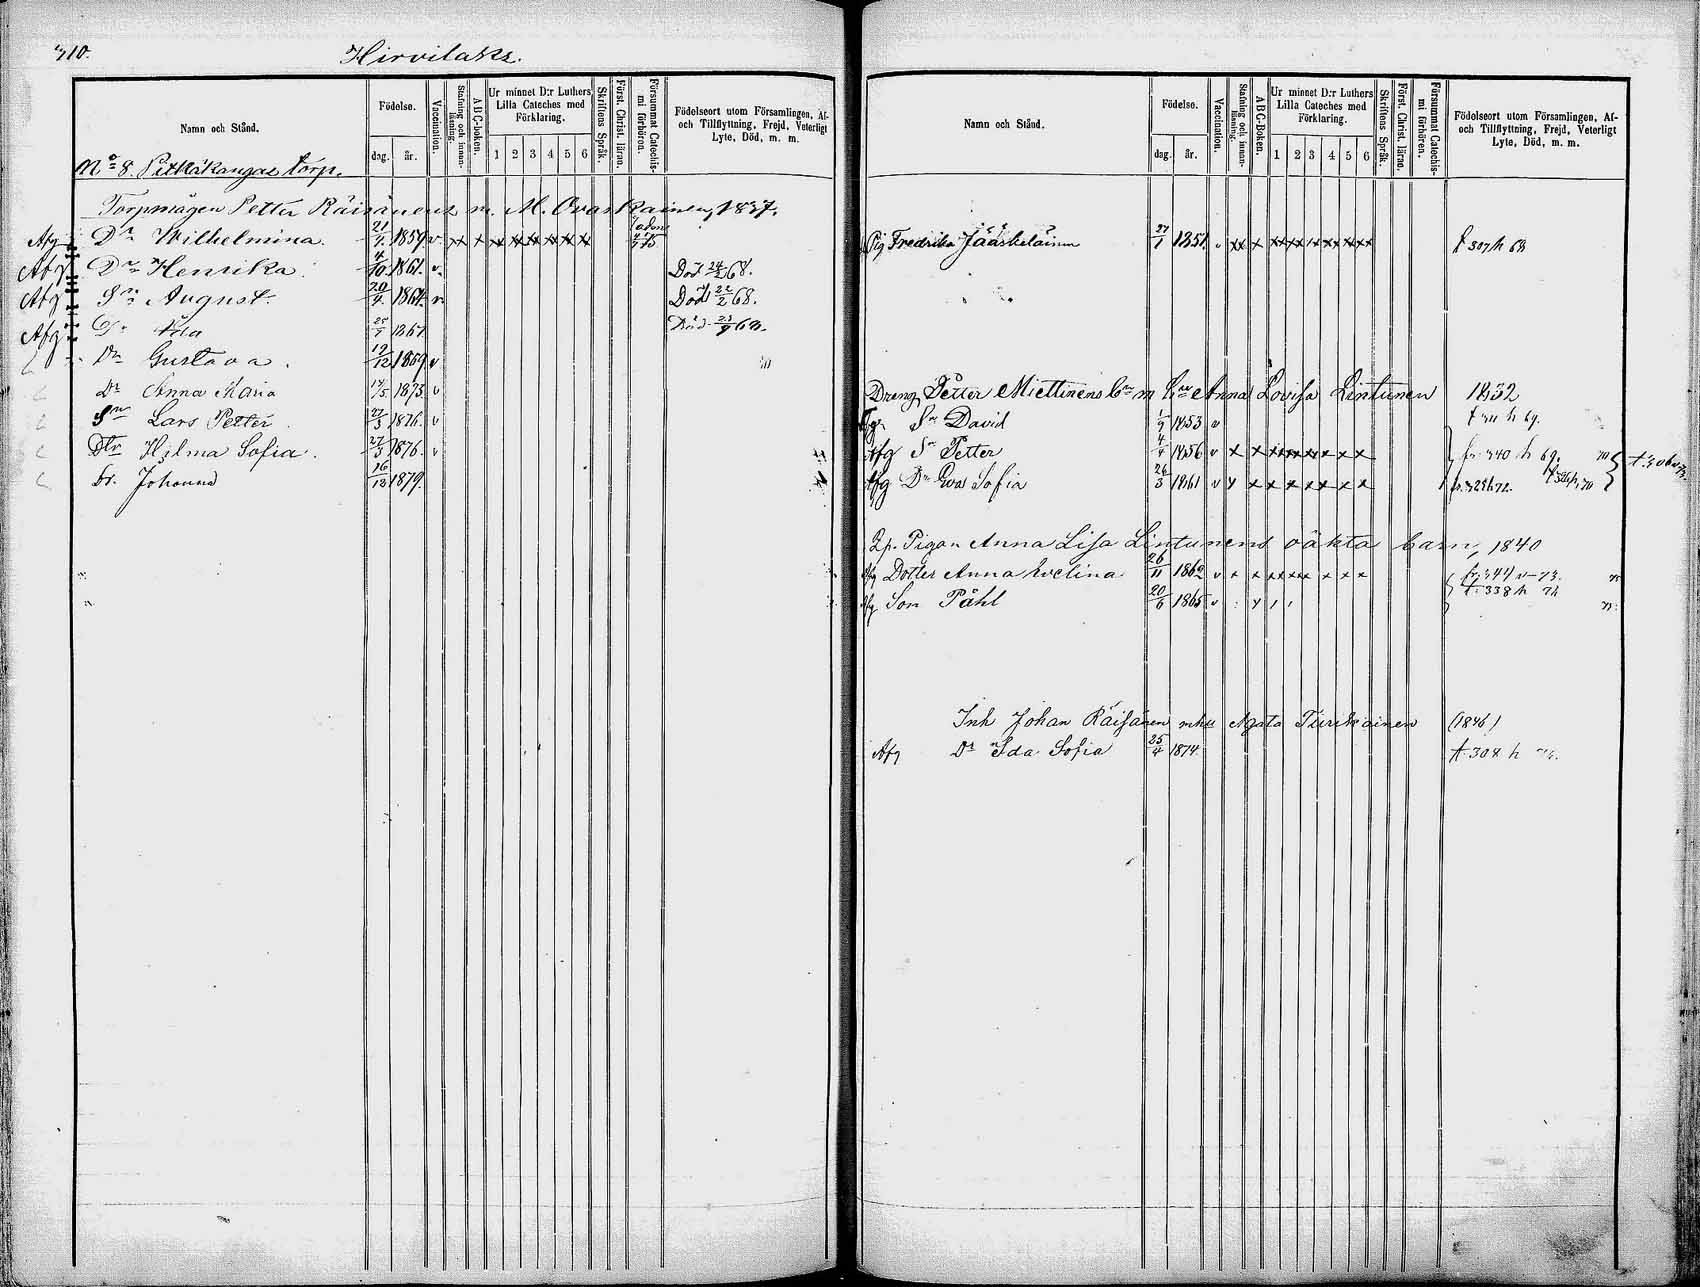 310.
Hirvilaks.
Namn och Stånd.
Födelse.
dag. år.
Vaccination.
Stafning och innan-läsning.
A B C-boken.
Ur minnet D:r Luthers Lilla Cateches med Förklaring.
1 2 3 4 5 6
Skriftens Språk.
Först. Christ. läran.
Försummat Catechis-mi förhören.
Födelseort utom Församlingen, Af- och Tillflyttning, Frejd, Veterligt Lyte, Död, m. m.
No 8. Pitkäkangas torp.
Torpmågen Petter Räisänens m. M. Ovaskainen, 1837.
Afg Dr Wilhelmina. 21/7 1859 v
Afg Dr Henrika 4/10 1861. v. Död 24/2 68.
Afg Sn August. 20/4 1864 v Död 22/2 68.
Afg Ida 1867 Död 68.
Dr Gustava. 19/12 1869 v
Dr Anna Maria 1873 v
Sn Lars Petter 27/3 1876. v
Dtr Hilma Sofia. 27/3 1876. v
Dr. Johanna 16/12 1879.
Namn och Stånd.
Födelse.
dag. år.
Vaccination.
Stafning och innan-läsning.
A B C-Boken.
Ur minnet D:r Luthers Lilla Cateches med Förklaring.
1 2 3 4 5 6
Skriftens Språk.
Först. Christ. läran.
Försummat Catechis-mi förhören.
Födelseort utom Församlingen, Af- och Tillflyttning, Frejd, Veterligt Lyte, Död, m. m.
Pig Fredrika Jääskeläinen 1851. v t 307 h 68
Dreng Petter Miettinens bn m Anna Lovisa Lintunen 1832
Sn David 1/9 1853 v t 311 h 69.
Afg Sn Petter 4/4 1856 v fr. 340 h 69.
Afg Dr Eva Sofia 26/3 1861 v fr. 329 h 72.
Pigan Anna Lisa Lintunens oäkta barn, 1840
Afg Dotter Anna Evelina 26/11 1862 v fr. 344 v-73.
t. 338 h 74
Afg Son Påhl 20/6 1865 v
Inh Johan Räisänen m hu Agata Tiirikainen (1846)
Afg Dr Ida Sofia 25/4 1874. t. 308 h